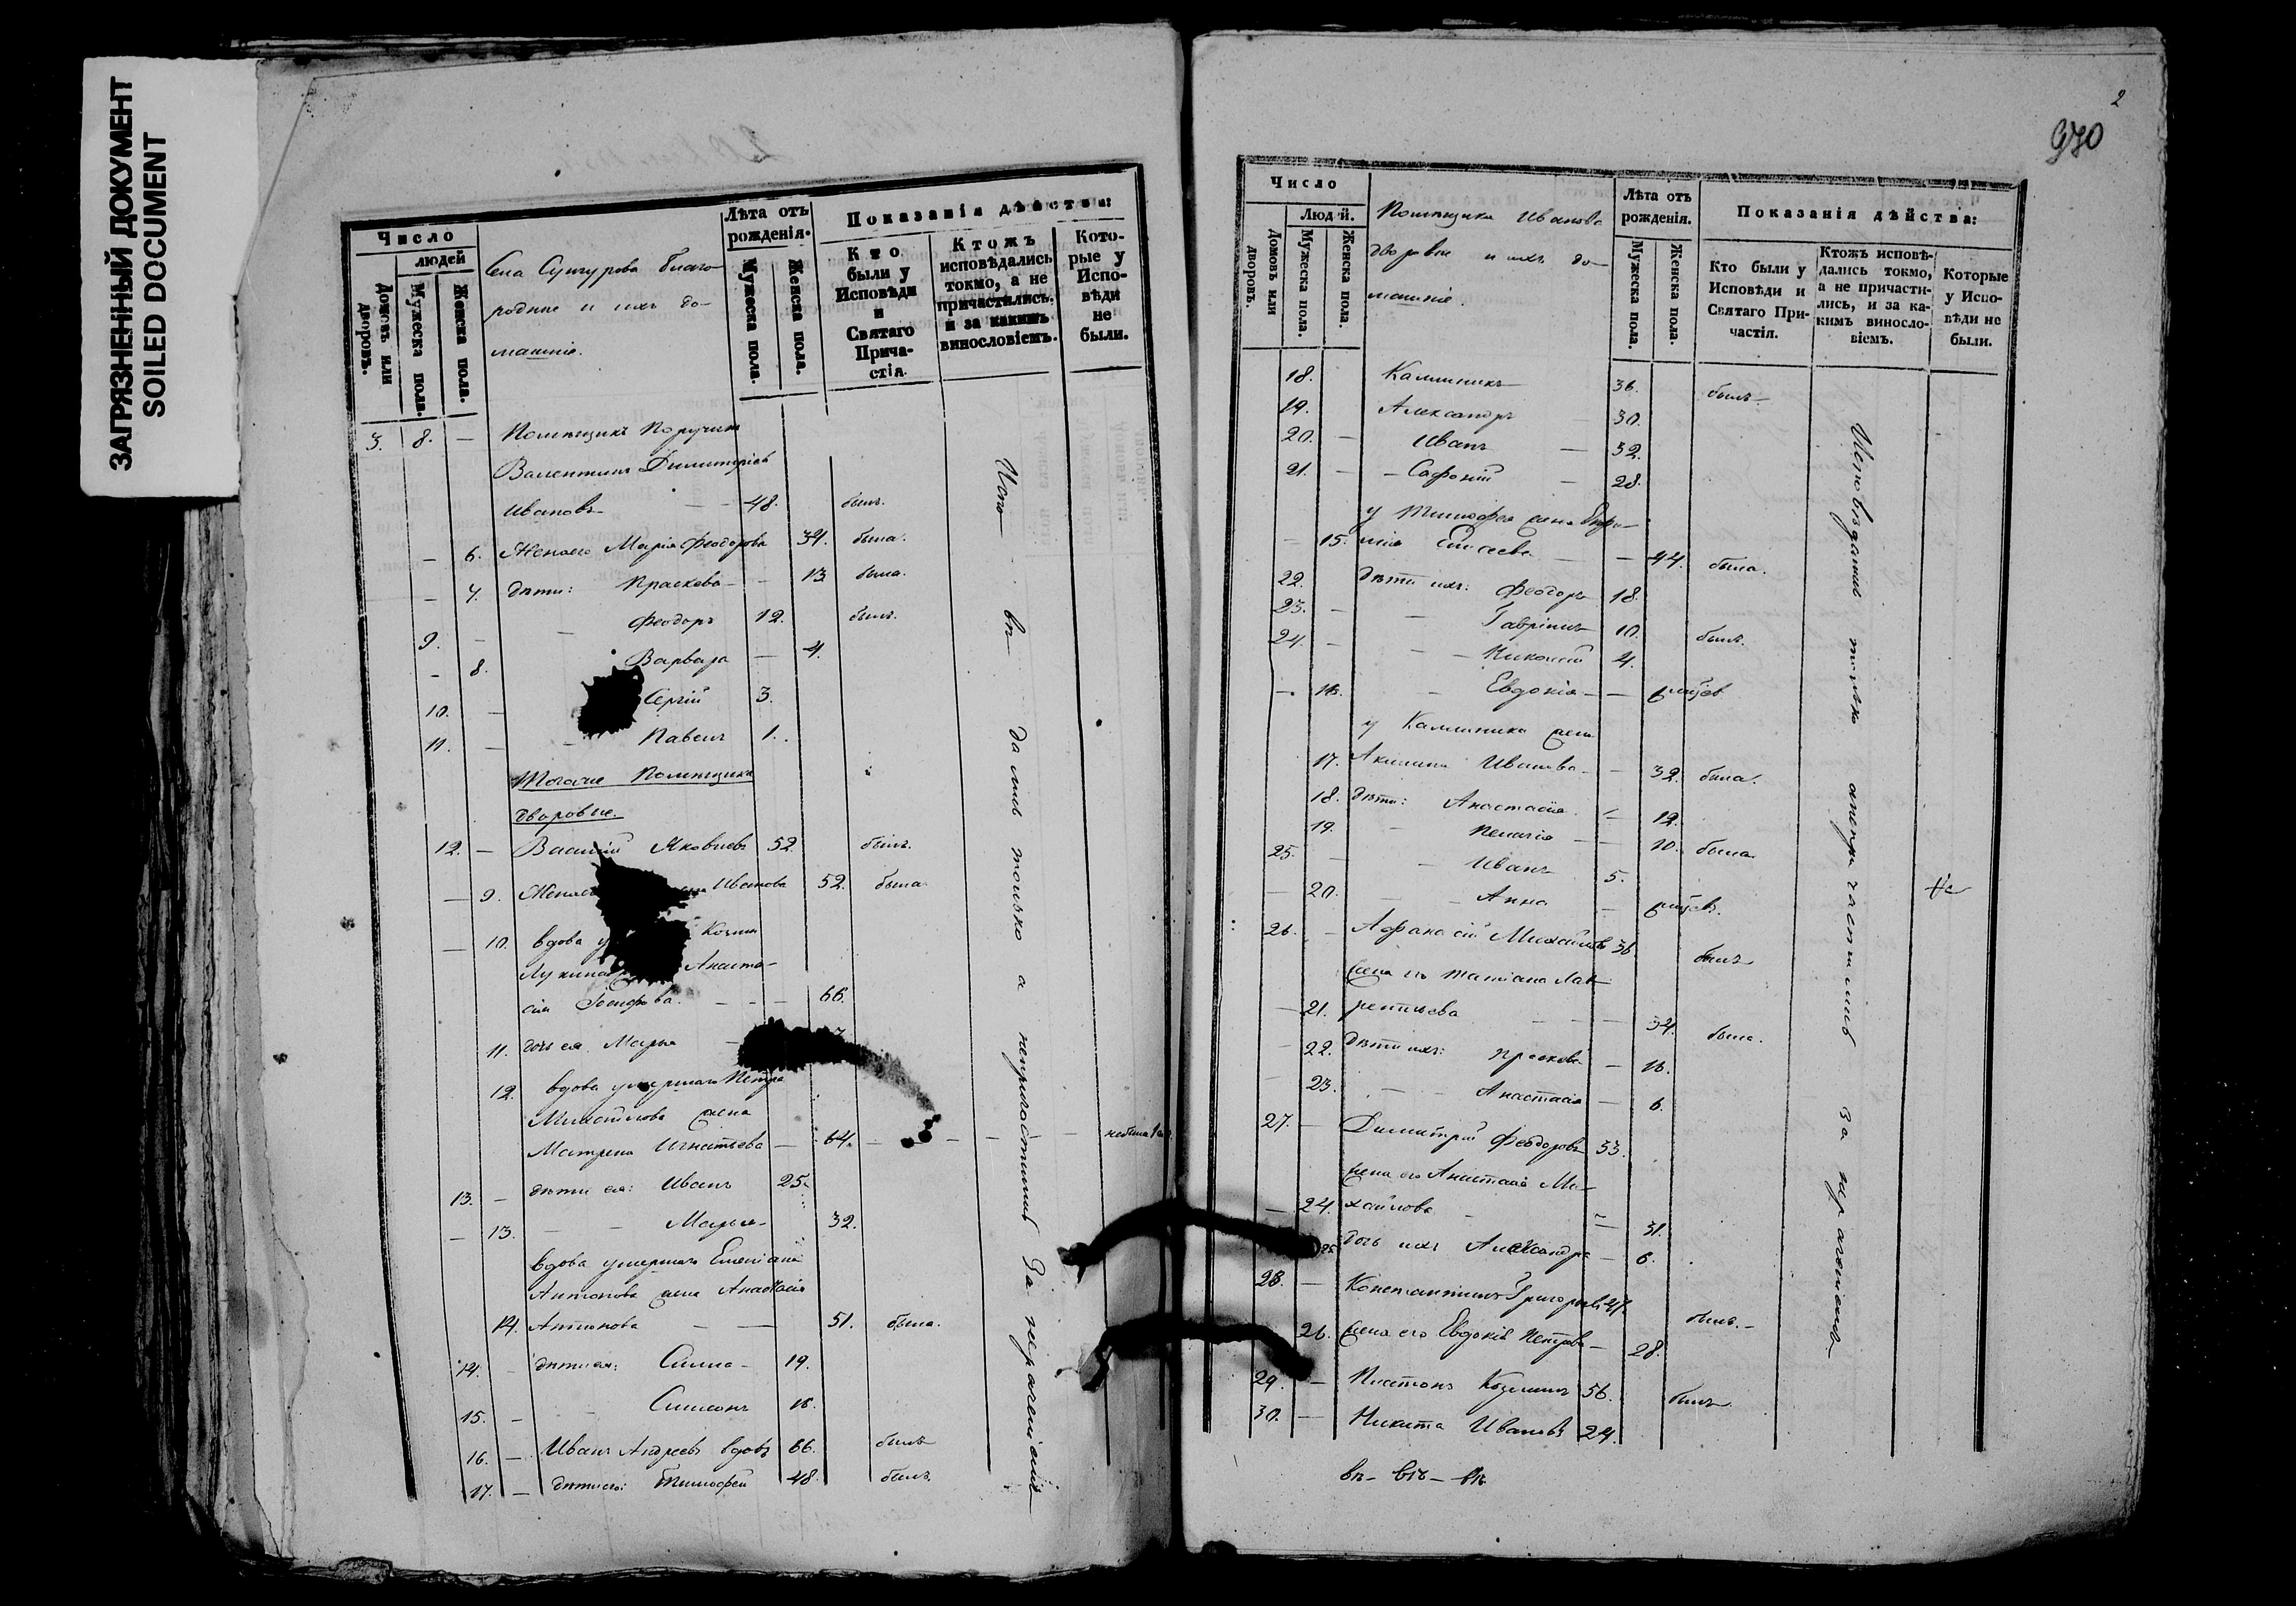 ЗАГРЯЗНЕННЫЙ ДОКУМЕНТ
SOILED DOCUMENT
Число
людей
Домовъ или дворовъ.
Мужеска пола.
Женска пола.
благо-
родные и ихъ до-
машніе.
Лѣта отъ рожденія.
Мужеска пола.
Женска пола.
Показанія дѣйства:
Кто были у Исповѣди и Святаго Прича-стія.
Ктожъ исповѣдались токмо, а не причастились. и за какимъ винословіемъ.
Кото-рые у Испо-вѣди не были.
3. 8. — Помѣщикъ Поручикъ
Валентинъ Димитріевъ
Ивановъ — 48. былъ.
— 6. Жена его Марія Феодорова 34. была.
— 7. дѣти: Прасковья — 13 была.
9. — — Феодоръ 12. былъ.
— 8. Варвара — 4.
10. — Сергій 3.
11. — — Павелъ 1.
Тогоже Помѣщика
дворовые.
12. — Василій Яковлевъ 52. былъ.
— 9. Жена Иванова 52. была.
— 10. вдова Козмы
Лукина Анаста-
сія Іосифова. — — — 66.
11. дочь ея Марья —
12. вдова умершаго Петра
Михайлова жена
Матрена Игнатьева — 64. — — — — небыла
13. — дѣти ея: Иванъ 25.
— 13. — — Марья 32.
вдова умершаго Емеліана
Антонова жена Анастасія
14. Антонова — — 51. была.
14. — дѣти ея: 19.
15. — — Симеонъ 16.
16. — Иванъ Андреевъ вдовъ 66. былъ
17. — дѣти его: Тимофей 48. былъ.
да лись только а непричастились За нераченіемъ
2
970
Число
Людей.
Домовъ или дворовъ.
Мужеска пола.
Женска пола.
Помѣщика Иванова
дворовые и ихъ до-
машніе.
Лѣта отъ рожденія.
Мужеска пола.
Женска пола.
Показанія дѣйства:
Кто были у Исповѣди и Святаго При-частія.
Ктожъ исповѣ-дались токмо, а не причасти-лись, и за ка-кимъ виносло-віемъ.
Которые у Испо-вѣди не были.
18. Каллиникъ 36. былъ
19. Александръ — 30.
20. — Иванъ — 32.
21. — — Сафоній — 28.
у Тимофея жена Евфи-
— 15. мія Елисеева — — 44. была.
22. дѣти ихъ: Феодоръ 18.
23. — — Гавріилъ 10. былъ.
24. — — — Николай 4.
— 16. — Евдокія — —
у Каллиника жена
17. Акилина Иванова — 32. была.
18. дѣти: Анастасія — 12.
19. — Пелагія — — 10. была.
25. — — Иванъ 5.
— 20. — — Анна —
26. — Афанасій Михайловъ 36. былъ
жена его Татіана Лав-
— 21. рентьева — — — 34. была.
— 22. дѣти ихъ: Прасковья — 16.
— 23. — — Анастасія — 6.
27. — Димитрій Феодоровъ 33.
жена его Анастасія Ми-
— 24. хайлова — — 31.
25. дочь ихъ Александра — 6.
28. — Константинъ Григорьевъ 27. былъ. —
26. жена его Евдокія Петрова — 28.
29. — Платонъ Козьминъ 56. былъ.
30. — Никита Ивановъ 24.
Исповѣдались только анепричастились за нераченіемъ